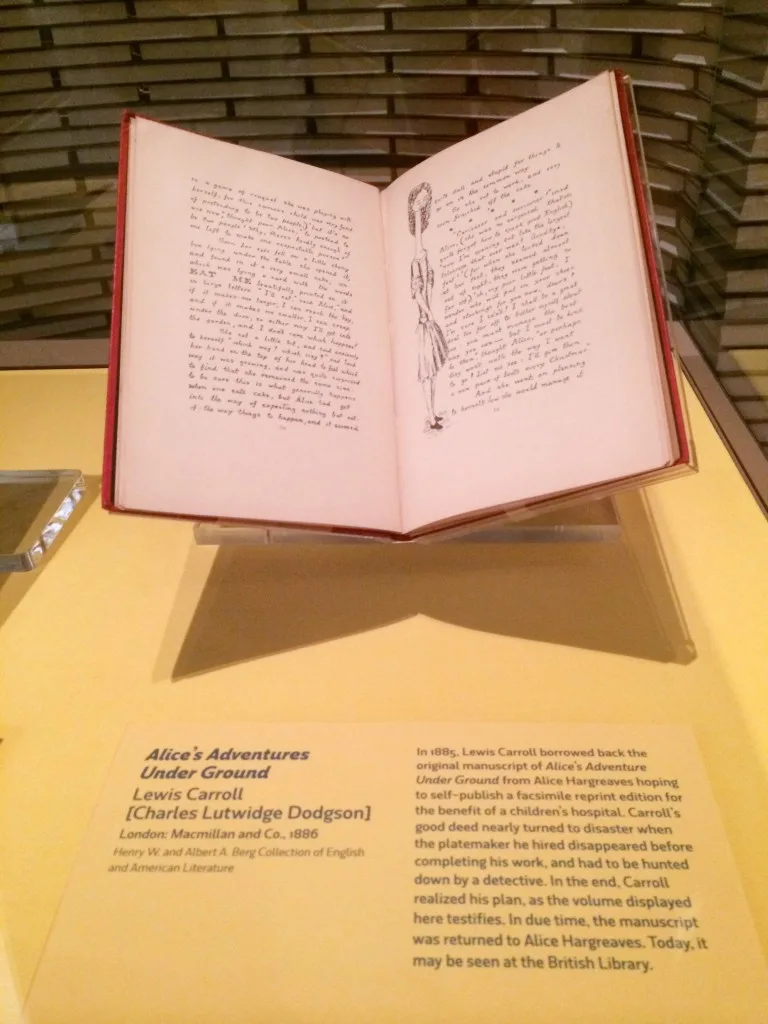 to a game of croquet she was playing with
herself, for this curious child was very fond
of pretending to be two people,) "but it's no
use now," thought poor Alice, "to pretend to
be two people! Why, there's hardly enough of
me left to make one respectable person!"
Soon her eyes fell on a little ebony
box lying under the table: she opened it,
and found in it a very small cake, on
which was lying a card with the words
EAT ME beautifully printed on it
in large letters. "I'll eat," said Alice, "and
if it makes me larger, I can reach the key,
and if it makes me smaller, I can creep
under the door, so either way I'll get into
the garden, and I don't care which happens!"
She eat a little bit, and said anxiously
to herself "which way? which way?" and laid
her hand on the top of her head to feel which
way it was growing, and was quite surprised
to find that she remained the same size:
to be sure this is what generally happens
when one eats cake, but Alice had got
into the way of expecting nothing but out-
of-the way things to happen, and it seemed
quite dull and stupid for things to
go on in the common way.
So she set to work, and very
soon finished off the cake.
"Curiouser and curiouser!" cried
Alice, (she was so surprised that she
quite forgot how to speak good English,)
"now I'm opening out like the largest
telescope that ever was! Goodbye,
feet!" (for when she looked down
at her feet, they seemed almost
out of sight, they were getting so
far off,) "oh, my poor little feet, I
wonder who will put on your shoes
and stockings for you now, dears?
I'm sure I can't! I shall be a great
deal too far off to bother myself about
you: you must manage the best
way you can: but I must be kind
to them," thought Alice, "or perhaps
they won't walk the way I want
to go! Let me see: I'll give them
a new pair of boots every Christmas."
And she went on planning
to herself how she would manage it
Alice's Adventures
Under Ground
Lewis Carroll
[Charles Lutwidge Dodgson]
London: Macmillan and Co., 1886
Henry W. and Albert A. Berg Collection of English
and American Literature
In 1885, Lewis Carroll borrowed back the
original manuscript of Alice's Adventure
Under Ground from Alice Hargreaves hoping
to self-publish a facsimile reprint edition for
the benefit of a children's hospital. Carroll's
good deed nearly turned to disaster when
the platemaker he hired disappeared before
completing his work, and had to be hunted
down by a detective. In the end, Carroll
realized his plan, as the volume displayed
here testifies. In due time, the manuscript
was returned to Alice Hargreaves. Today, it
may be seen at the British Library.